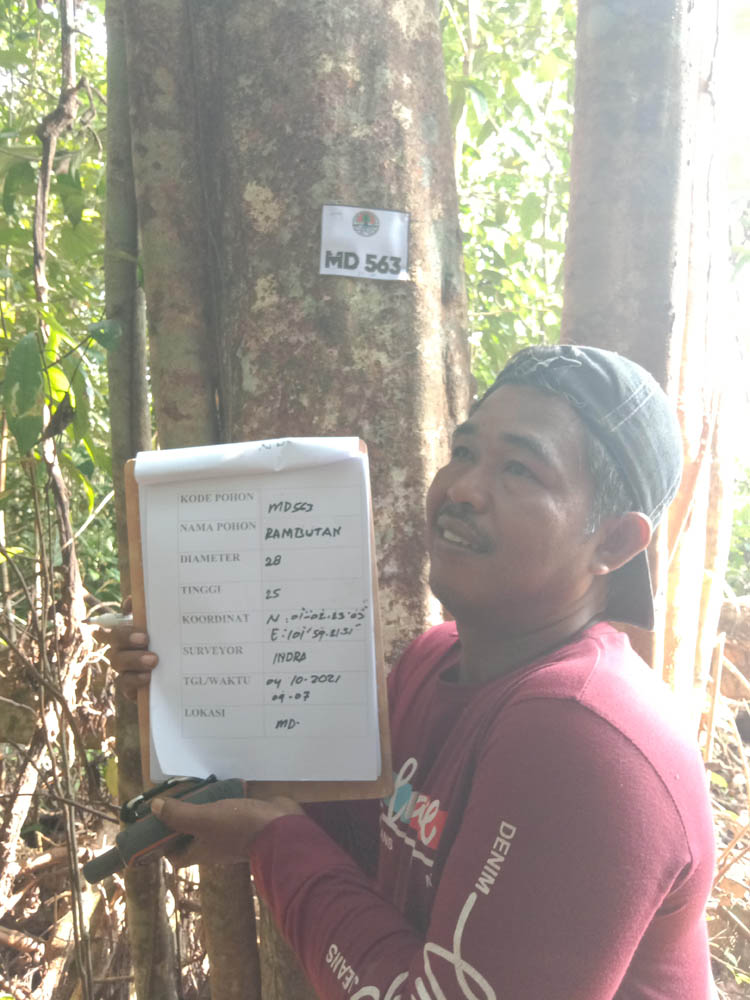 MD 563
KODE POHON MD563
NAMA POHON RAMBUTAN
DIAMETER 28
TINGGI 25
KOORDINAT N : 01° 02. 23' 03"
E : 101° 59. 21. 51"
SURVEYOR INDRA
TGL/WAKTU 04 10-2021
09-07
LOKASI MD-
DENIM
JEANS